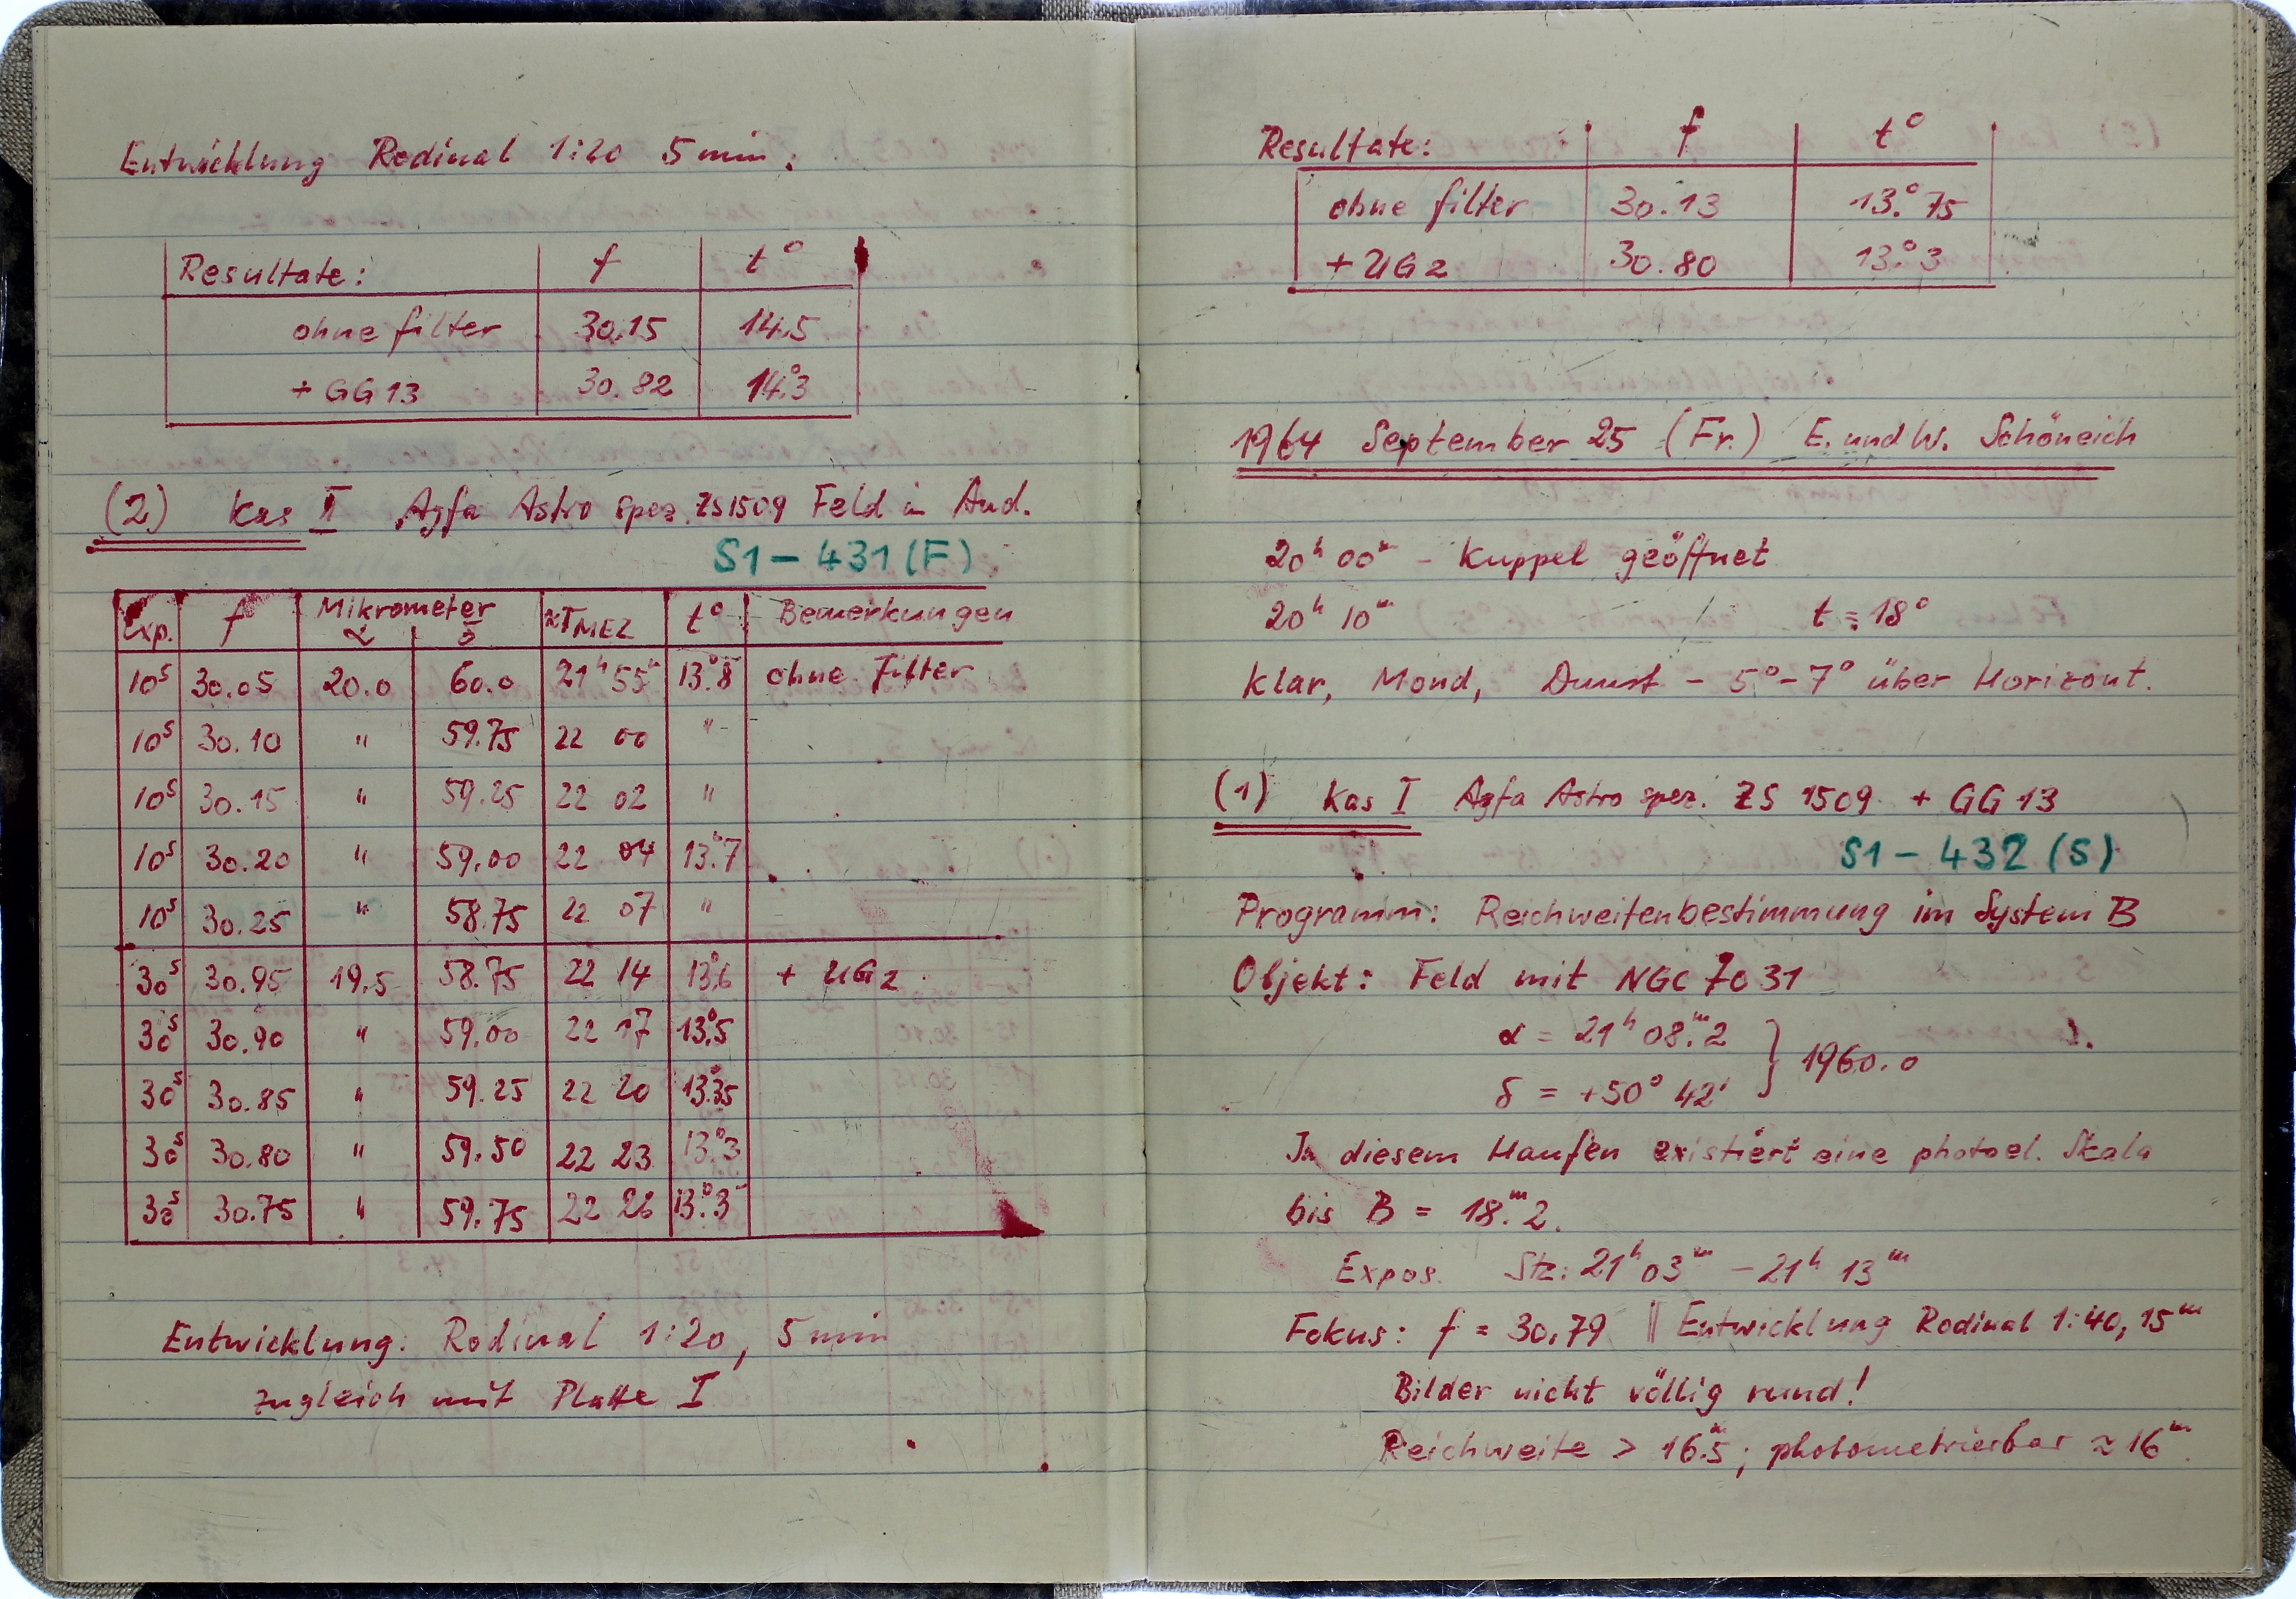 Entwicklung Rodinal 1:20 5 min.
Resultate: f t°
ohne filter 30.15 14.5
+ GG 13 30.82 14°.3
(2) Kas II Agfa Astro spez. ZS1509 Feld in And.
S1 – 431 (F)
Exp. f Mikrometer α δ ≈T MEZ t° Bemerkungen
10ˢ 30.05 20.0 60.0 21ʰ 55ᵐ 13°.8 ohne Filter
10ˢ 30.10 " 59.75 22 00 "
10ˢ 30.15 " 59.25 22 02 "
10ˢ 30.20 " 59.00 22 04 13°.7
10ˢ 30.25 " 58.75 22 07 "
30ˢ 30.95 19.5 58.75 22 14 13°.6 + UG2
30ˢ 30.90 " 59.00 22 17 13°.5
30ˢ 30.85 " 59.25 22 20 13°.35
30ˢ 30.80 " 59.50 22 23 13°.3
30ˢ 30.75 " 59.75 22 26 13°.3
Entwicklung: Rodinal 1:20, 5 min
zugleich mit Platte I
Resultate: f t°
ohne filter 30.13 13°.75
+ UG2 30.80 13°.3
1964 September 25 (Fr.) E. und W. Schöneich
20ʰ 00ᵐ – Kuppel geöffnet
20ʰ 10ᵐ t = 18°
Klar, Mond, Dunst – 5°– 7° über Horizont.
(1) Kas I Agfa Astro spez. ZS 1509 + GG 13
S1 – 432 (S)
Programm: Reichweitenbestimmung im System B
Objekt: Feld mit NGC 7031
α = 21ʰ 08ᵐ.2
} 1960.0
δ = +50° 42'
In diesem Haufen existiert eine photoel. Skala
bis B = 18ᵐ.2.
Expos. Stz: 21ʰ 03ᵐ – 21ʰ 13ᵐ
Fokus: f = 30.79 || Entwicklung Rodinal 1:40, 15ᵐ
Bilder nicht völlig rund!
Reichweite > 16ᵐ.5; photometrierbar ≈ 16ᵐ.